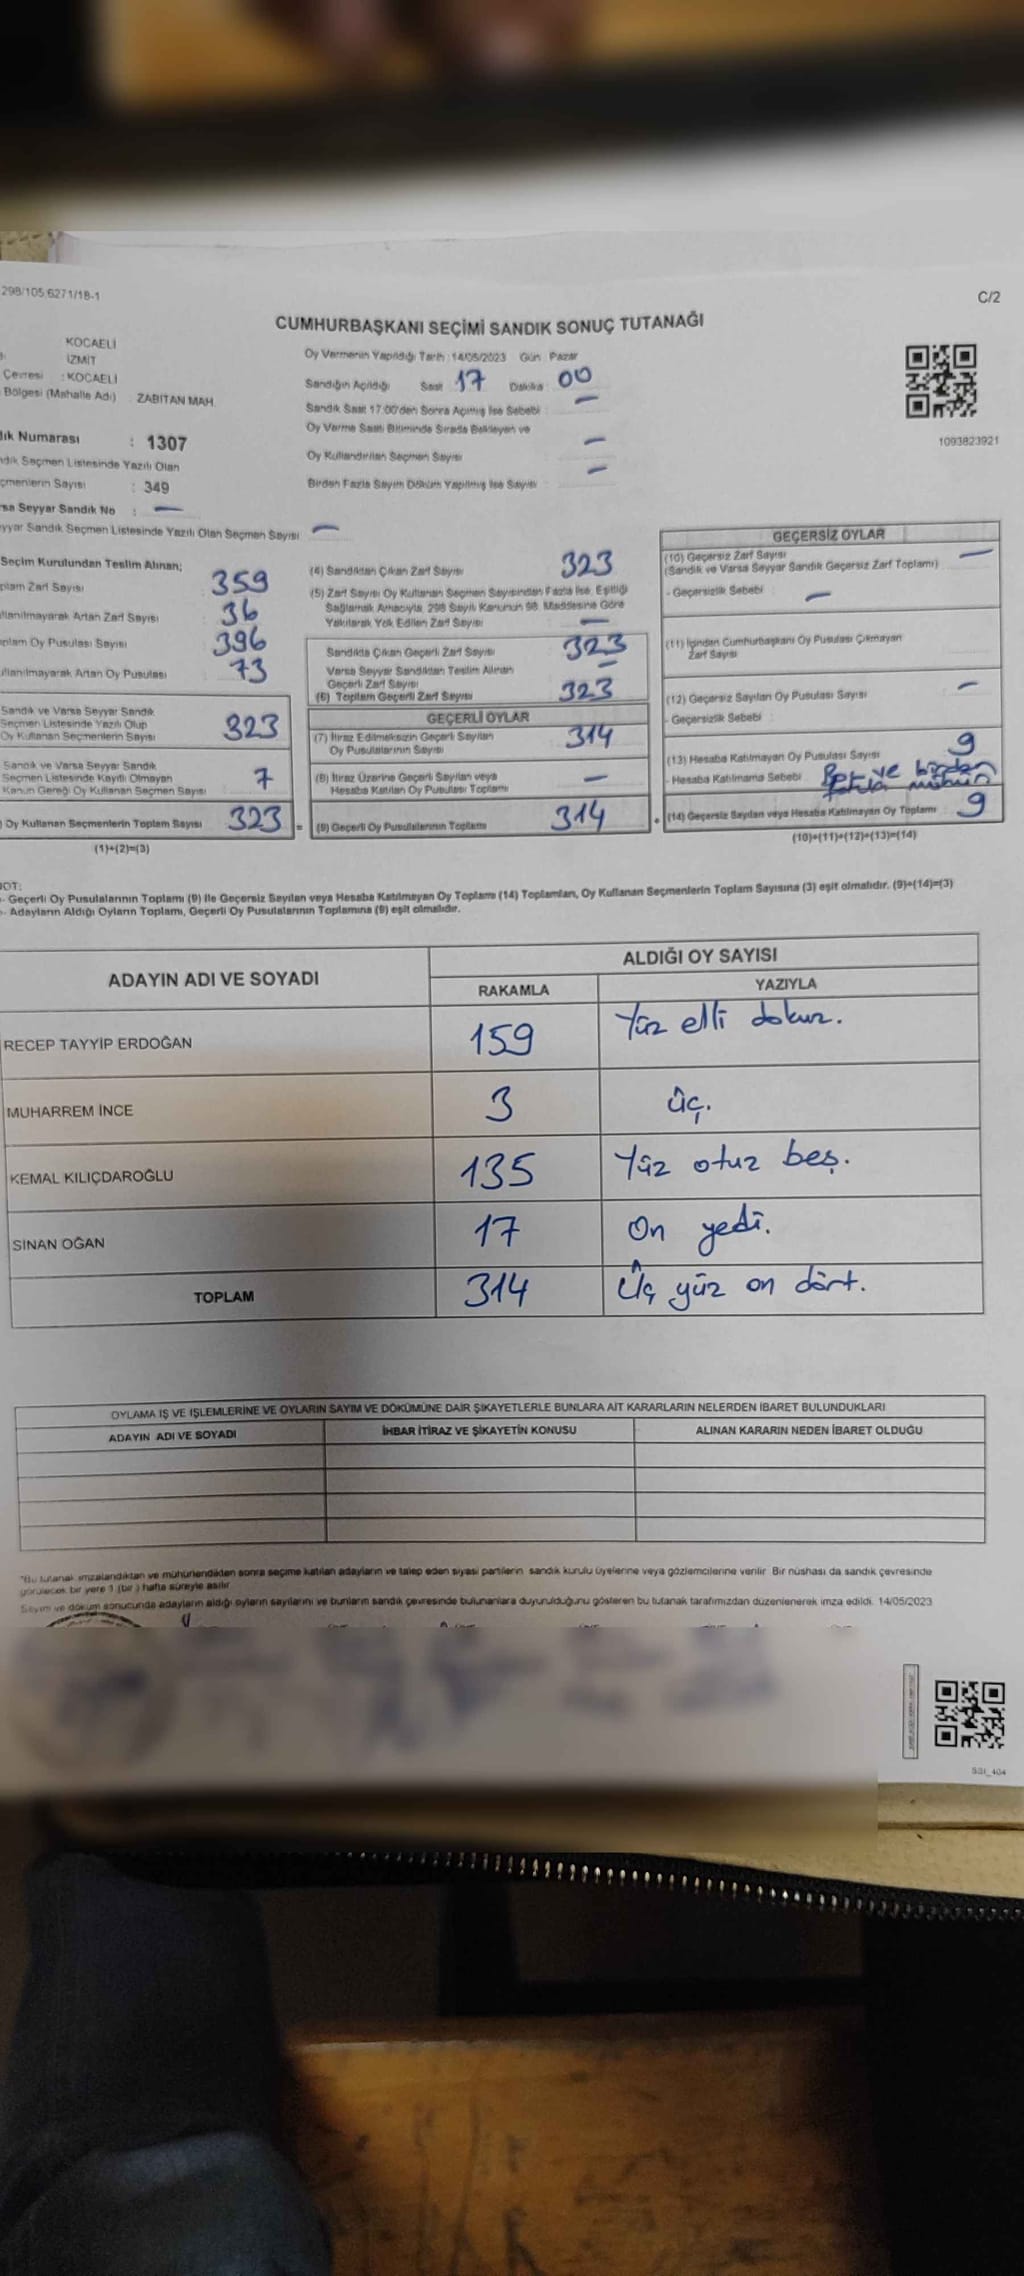 298/105.6271/18-1
C/2
CUMHURBAŞKANI SEÇİMİ SANDIK SONUÇ TUTANAĞI
KOCAELİ
İZMİT
Çevresi : KOCAELİ
Bölgesi (Mahalle Adı) : ZABITAN MAH.
Numarası : 1307
Seçmen Listesinde Yazılı Olan
Sayısı : 349
Seyyar Sandık No : —
Sandık Seçmen Listesinde Yazılı Olan Seçmen Sayısı —
Oy Vermenin Yapıldığı Tarih : 14/05/2023 Gün : Pazar
Sandığın Açıldığı Saat 17 Dakika : 00
Sandık Saat 17:00'den Sonra Açılmış İse Sebebi : —
Oy Verme Saati Bitiminde Sırada Bekleyen ve
Oy Kullandırılan Seçmen Sayısı —
Birden Fazla Sayım Döküm Yapılmış İse Sayısı : —
1093823921
Seçim Kurulundan Teslim Alınan;
Zarf Sayısı : 359
Artan Zarf Sayısı : 36
Oy Pusulası Sayısı : 396
Artan Oy Pusulası : 73
Sandık ve Varsa Seyyar Sandık
Seçmen Listesinde Yazılı Olup
Oy Kullanan Seçmenlerin Sayısı 323
Sandık ve Varsa Seyyar Sandık
Seçmen Listesinde Kayıtlı Olmayan
Kanun Gereği Oy Kullanan Seçmen Sayısı : 7
Oy Kullanan Seçmenlerin Toplam Sayısı 323 =
(1)+(2)=(3)
(4) Sandıktan Çıkan Zarf Sayısı 323
(5) Zarf Sayısı Oy Kullanan Seçmen Sayısından Fazla İse, Eşitliği
Sağlamak Amacıyla, 298 Sayılı Kanunun 98. Maddesine Göre
Yakılarak Yok Edilen Zarf Sayısı : —
Sandıkta Çıkan Geçerli Zarf Sayısı 323
Varsa Seyyar Sandıktan Teslim Alınan
Geçerli Zarf Sayısı —
(6) Toplam Geçerli Zarf Sayısı 323
GEÇERLİ OYLAR
(7) İtiraz Edilmeksizin Geçerli Sayılan
Oy Pusulalarının Sayısı 314
(8) İtiraz Üzerine Geçerli Sayılan veya
Hesaba Katılan Oy Pusulası Toplamı —
(9) Geçerli Oy Pusulalarının Toplamı 314 +
GEÇERSİZ OYLAR
(10) Geçersiz Zarf Sayısı
(Sandık ve Varsa Seyyar Sandık Geçersiz Zarf Toplamı) —
- Geçersizlik Sebebi : —
(11) İçinden Cumhurbaşkanı Oy Pusulası Çıkmayan
Zarf Sayısı
(12) Geçersiz Sayılan Oy Pusulası Sayısı —
- Geçersizlik Sebebi :
(13) Hesaba Katılmayan Oy Pusulası Sayısı 9
- Hesaba Katılmama Sebebi : ve birden
(14) Geçersiz Sayılan veya Hesaba Katılmayan Oy Toplamı : 9
(10)+(11)+(12)+(13)=(14)
- Geçerli Oy Pusulalarının Toplamı (9) İle Geçersiz Sayılan veya Hesaba Katılmayan Oy Toplamı (14) Toplamları, Oy Kullanan Seçmenlerin Toplam Sayısına (3) eşit olmalıdır. (9)+(14)=(3)
- Adayların Aldığı Oyların Toplamı, Geçerli Oy Pusulalarının Toplamına (9) eşit olmalıdır.
ADAYIN ADI VE SOYADI
ALDIĞI OY SAYISI
RAKAMLA YAZIYLA
RECEP TAYYİP ERDOĞAN 159 Yüz elli dokuz.
MUHARREM İNCE 3 üç.
KEMAL KILIÇDAROĞLU 135 Yüz otuz beş.
SİNAN OĞAN 17 On yedi.
TOPLAM 314 Üç yüz on dört.
OYLAMA İŞ VE İŞLEMLERİNE VE OYLARIN SAYIM VE DÖKÜMÜNE DAİR ŞİKAYETLERLE BUNLARA AİT KARARLARIN NELERDEN İBARET BULUNDUKLARI
ADAYIN ADI VE SOYADI İHBAR İTİRAZ VE ŞİKAYETİN KONUSU ALINAN KARARIN NEDEN İBARET OLDUĞU
*Bu tutanak imzalandıktan ve mühürlendikten sonra seçime katılan adayların ve talep eden siyasi partilerin sandık kurulu üyelerine veya gözlemcilerine verilir. Bir nüshası da sandık çevresinde
görülecek bir yere 1 (bir) hafta süreyle asılır.
Sayım ve döküm sonucunda adayların aldığı oyların sayılarını ve bunların sandık çevresinde bulunanlara duyurulduğunu gösteren bu tutanak tarafımızdan düzenlenerek imza edildi. 14/05/2023
SSI_404